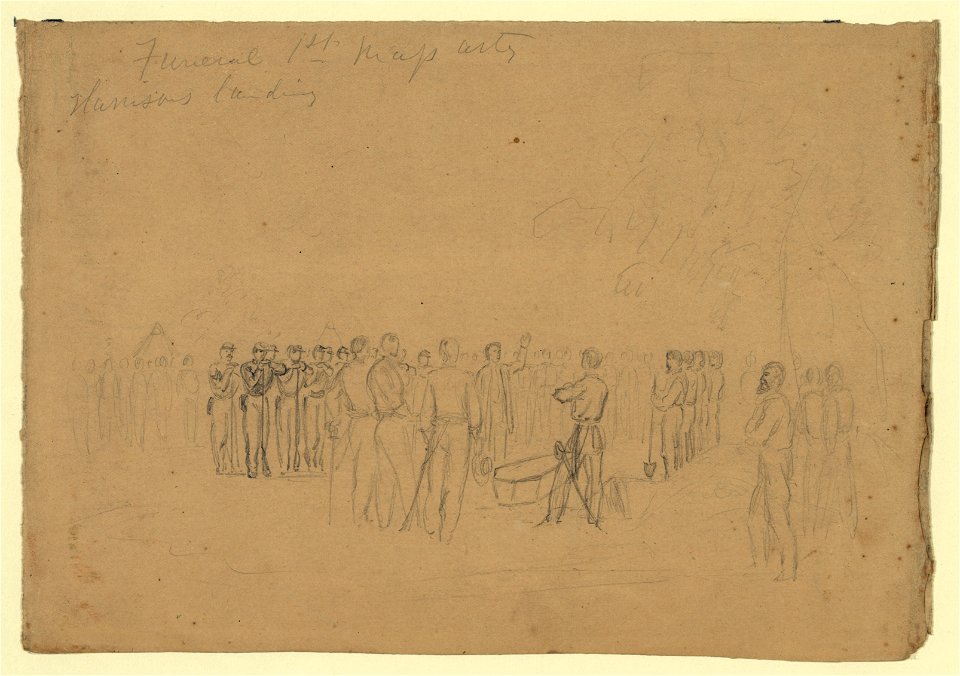 Funeral 1st Mass arty
Harrisons landing